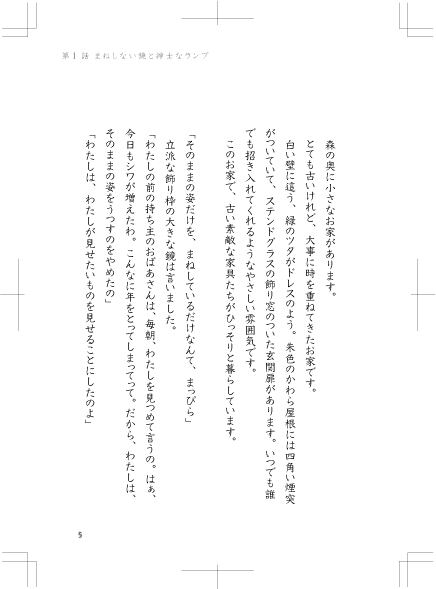 第1話 まねしない鏡と紳士なランプ
森の奥に小さなお家があります。
とても古いけれど、大事に時を重ねてきたお家です。
白い壁に這う、緑のツタがドレスのよう。朱色のかわら屋根には四角い煙突
がついていて、ステンドグラスの飾り窓のついた玄関扉があります。いつでも誰
でも招き入れてくれるようなやさしい雰囲気です。
このお家で、古い素敵な家具たちがひっそりと暮らしています。
「そのままの姿だけを、まねしているだけなんて、まっぴら」
立派な飾り枠の大きな鏡は言いました。
「わたしの前の持ち主のおばあさんは、毎朝、わたしを見つめて言うの。はぁ、
今日もシワが増えたわ。こんなに年をとってしまってって。だから、わたしは、
そのままの姿をうつすのをやめたの」
「わたしは、わたしが見せたいものを見せることにしたのよ」
5